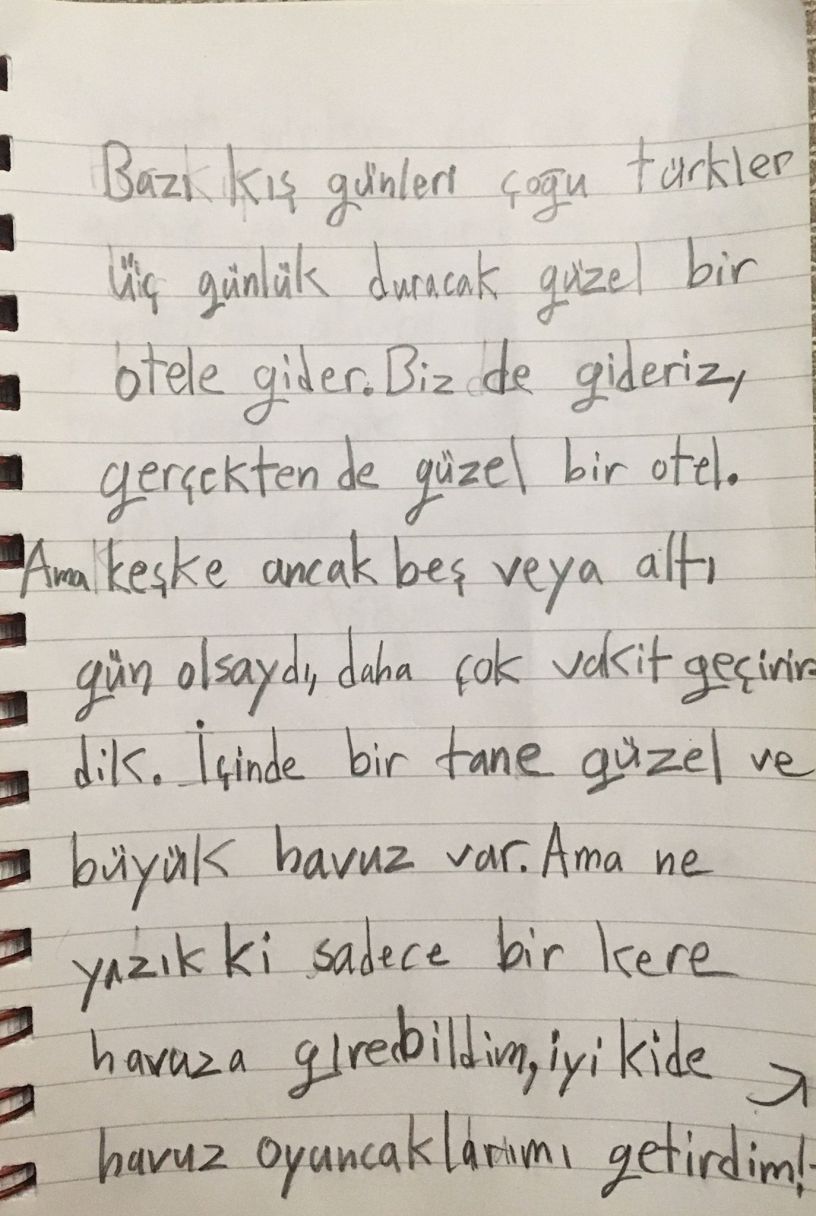 Bazı kış günleri çoğu türkler
üç günlük duracak güzel bir
otele gider. Biz de gideriz,
gerçekten de güzel bir otel.
Ama keşke ancak beş veya altı
gün olsaydı, daha çok vakit geçirir-
dik. İçinde bir tane güzel ve
büyük havuz var. Ama ne
yazık ki sadece bir kere
havuza girebildim, iyi kide
havuz oyuncaklarımı getirdim!